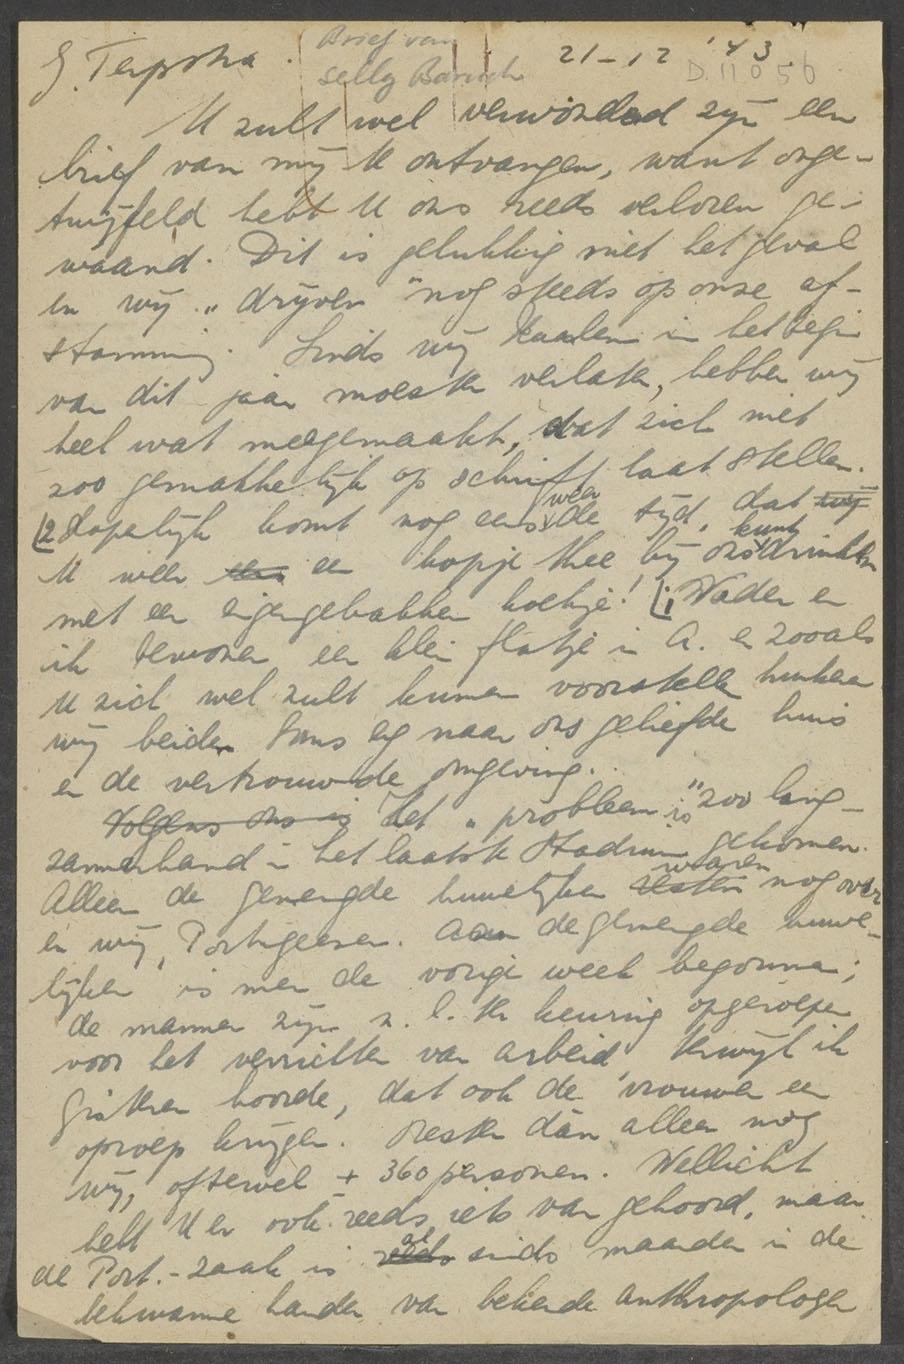 G. Terpstra. Brief van 21-12 '43.
Selly Baruch D.11056
U zult wel verwonderd zijn een
brief van mij te ontvangen, want onge-
twijfeld hebt U ons reeds verloren ge-
waand. Dit is gelukkig niet het geval
en wij „drijven" nog steeds op onze af-
stamming. Sinds wij Haarlem in het begin
van dit jaar moesten verlaten, hebben wij
heel wat meegemaakt, dat zich niet
zoo gemakkelijk op schrift laat stellen.
[2 Hopelijk komt nog eens weer de tijd, dat wij
U weer een een kopje thee bij ons kunt drinken
met een eigengebakken koekje! [1 Vader en
ik bewonen een klein flatje in A. en zooals
U zich wel zult kunnen voorstellen hunkeren
wij beiden soms erg naar ons geliefde huis
en de vertrouwde omgeving.
Volgens ons is Het „probleem" is zoo lang-
zamerhand in het laatste stadium gekomen.
Alleen de gemengde huwelijken resten waren nog over
en wij, Portugeezen. Aan de gemengde huwe-
lijken is men de vorige week begonnen;
de mannen zijn n.l. ter keuring opgeroepen
voor het verrichten van arbeid, terwijl ik
gisteren hoorde, dat ook de vrouwen een
oproep krijgen. Resten dan alleen nog
wij, oftewel ± 360 personen. Wellicht
hebt U er ook reeds iets van gehoord, maar
de Port.-zaak is reeds al sinds maanden in de
bekwame handen van bekende anthropologen